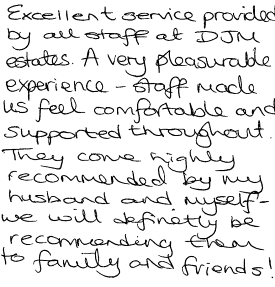 Excellent service provided
by all staff at DJM
estates. A very pleasurable
experience - staff made
us feel comfortable and
supported throughout.
They come highly
recommended by my
husband and myself -
we will definetly be
recommending them
to family and friends!